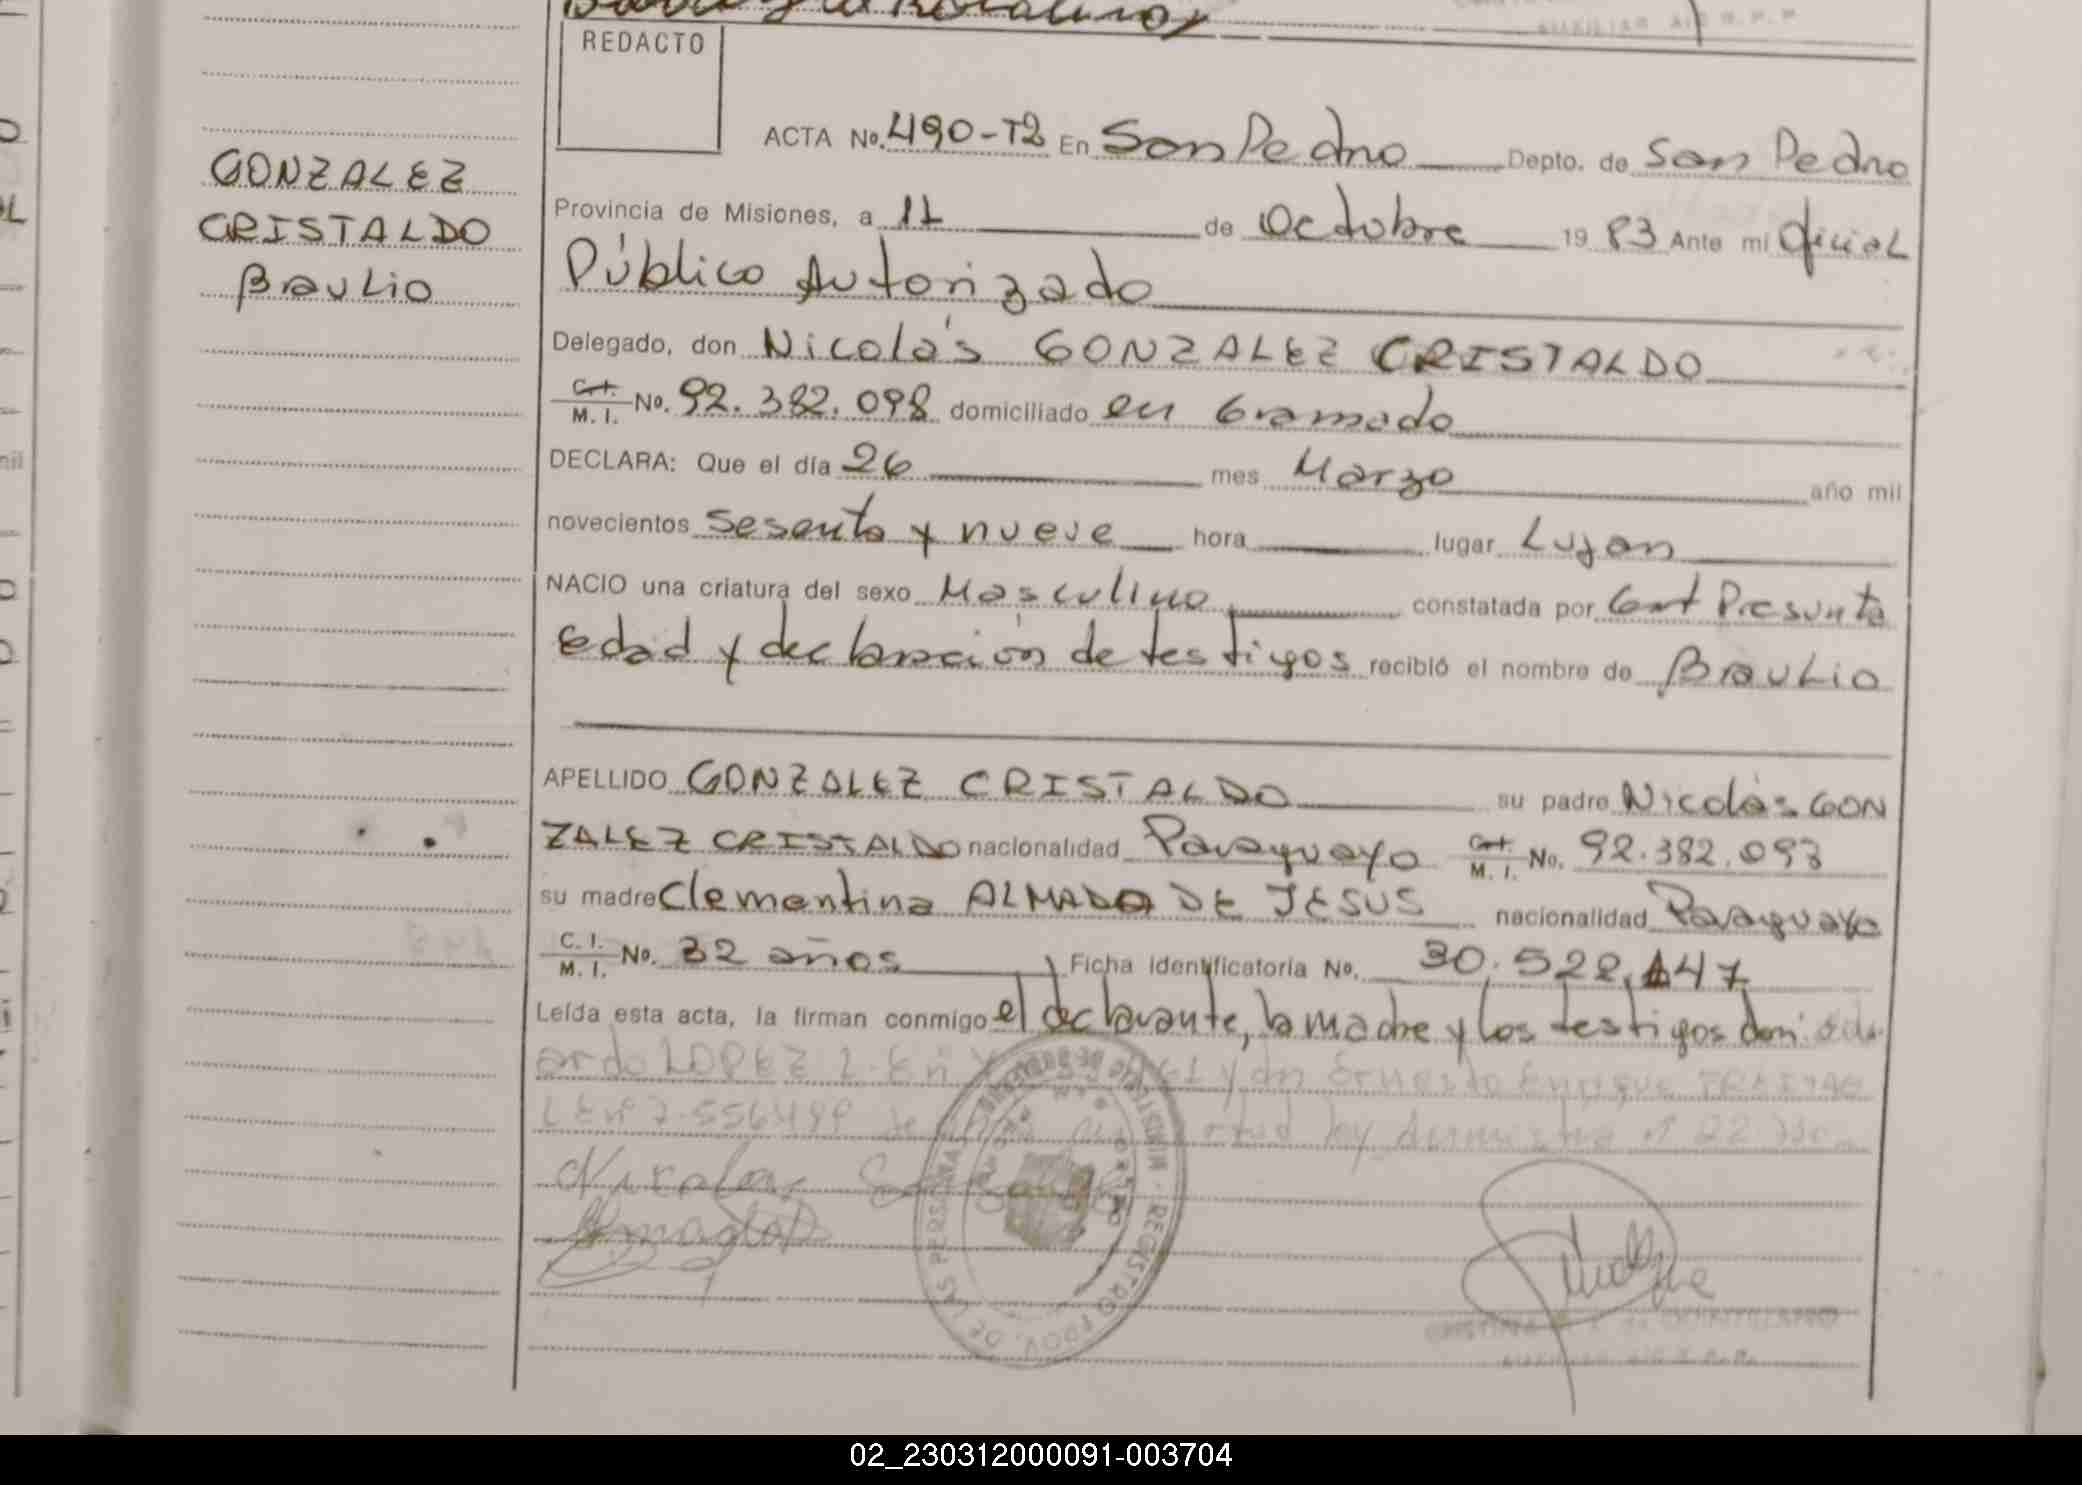 REDACTO
GONZALEZ
CRISTALDO
Braulio
ACTA No. 490-T2 En San Pedro Depto. de San Pedro
Provincia de Misiones, a 11 de Octubre 19 83 Ante mi Oficial
Público Autorizado
Delegado, don Nicolás GONZALEZ CRISTALDO
C.I. M. I. No. 92.382.098 domiciliado en Gramado
DECLARA: Que el día 26 mes Marzo año mil
novecientos sesenta y nueve hora lugar Lujan
NACIO una criatura del sexo Masculino constatada por Cert Presunta
edad y declaración de testigos recibló el nombre de Braulio
APELLIDO GONZALEZ CRISTALDO su padre Nicolás GON
ZALEZ CRISTALDO nacionalidad Paraguayo M. I. No. 92.382.093
su madre Clementina ALMADA DE JESUS nacionalidad Paraguaya
C. I. M. I. No. 32 años Ficha identificatoria No. 30.522.147
Leída esta acta, la firman conmigo el declarante, la madre y los testigos don Edu
ardo LOPEZ Ernesto Enrique
Nicolas
02_230312000091-003704